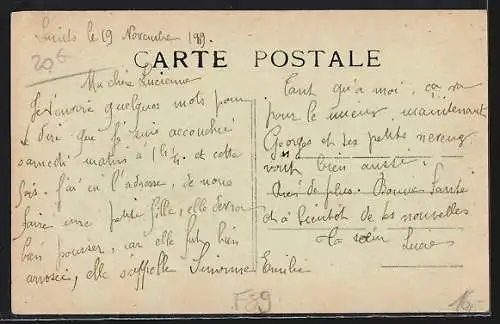 le 19 Novembre 19
20€
CARTE POSTALE
Ma chère Lucienne
Je t'envoie quelques mots pour
dire que je suis accouchée
samedi matin à 1h¼. et cette
fois. j'ai eu l'adresse, de nous
faire une petite fille, elle devra
bien pousser, car elle fut bien
arrosée, elle s'appelle Simonne Emilie
Tant qu'à moi, ça va
pour le mieux, maintenant
Georges et tes petits neveux
vont bien aussi.
Rien de plus. Bonne Santé
et à bientôt de tes nouvelles
Ta sœur
F89